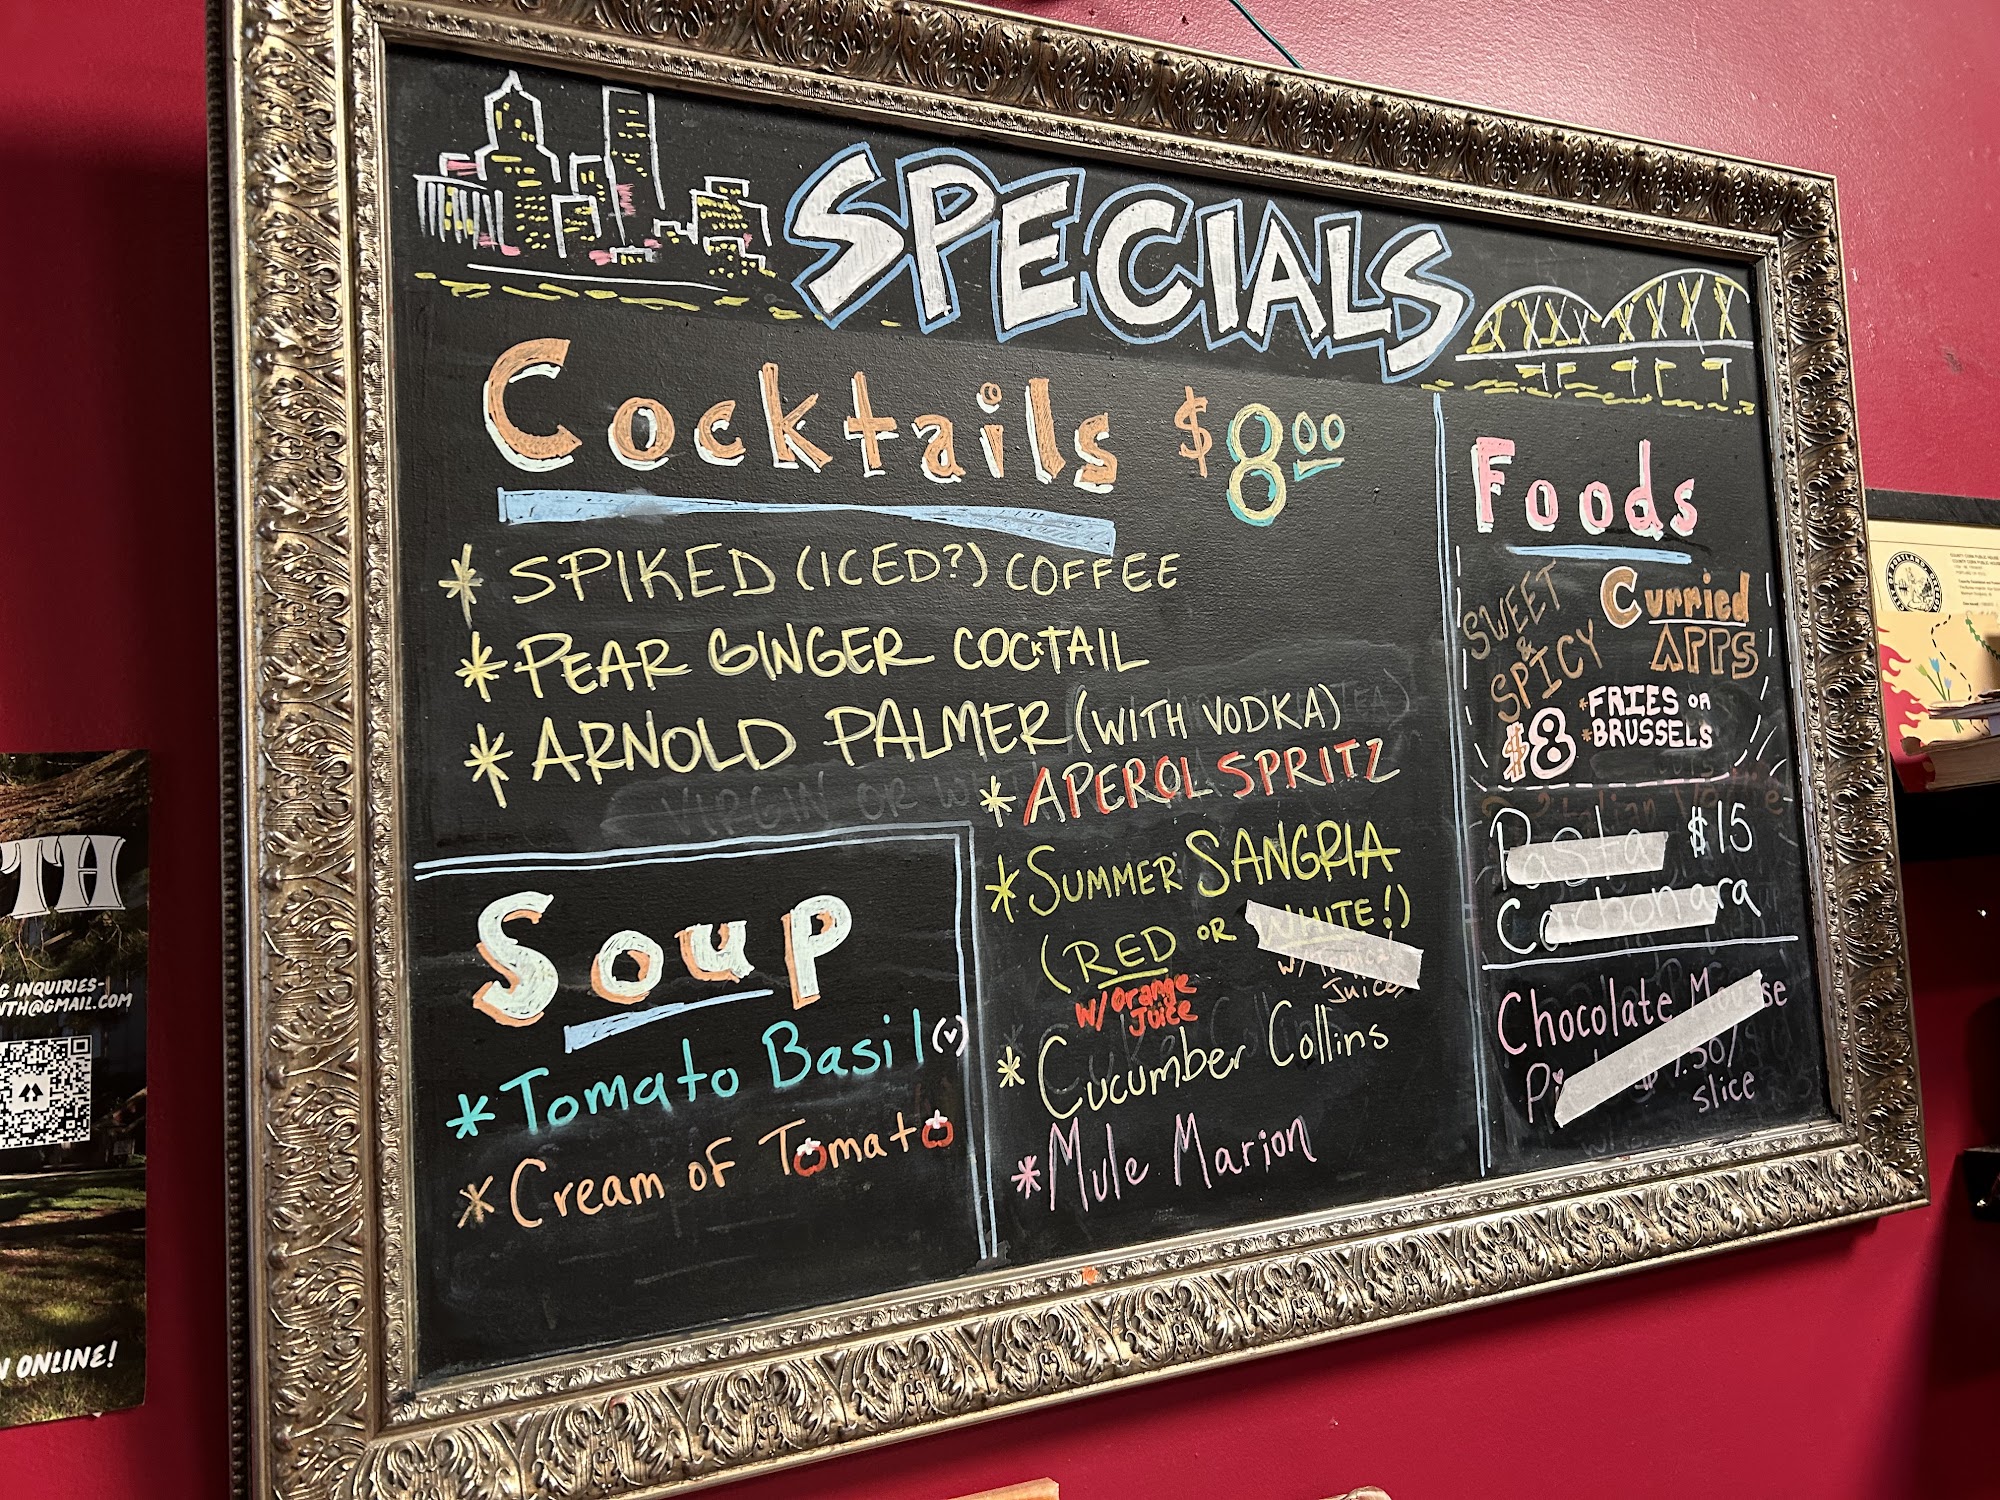 SPECIALS
Cocktails $8.00
* SPIKED (ICED?) COFFEE
* PEAR GINGER COCKTAIL
* ARNOLD PALMER (WITH VODKA)
* APEROL SPRITZ
* SUMMER SANGRIA
(RED OR WHITE!)
w/ orange
Juice
w/ Tropical
Juice
* Cucumber Collins
* Mule Marion
Soup
* Tomato Basil (v)
* Cream of Tomato
Foods
SWEET
&
SPICY
Curried
APPS
$8
*FRIES OR
*BRUSSELS
Pasta $15
Carbonara
Chocolate Mousse
7.50/
slice
TH
G INQUIRIES-
NTH@GMAIL.COM
N ONLINE!